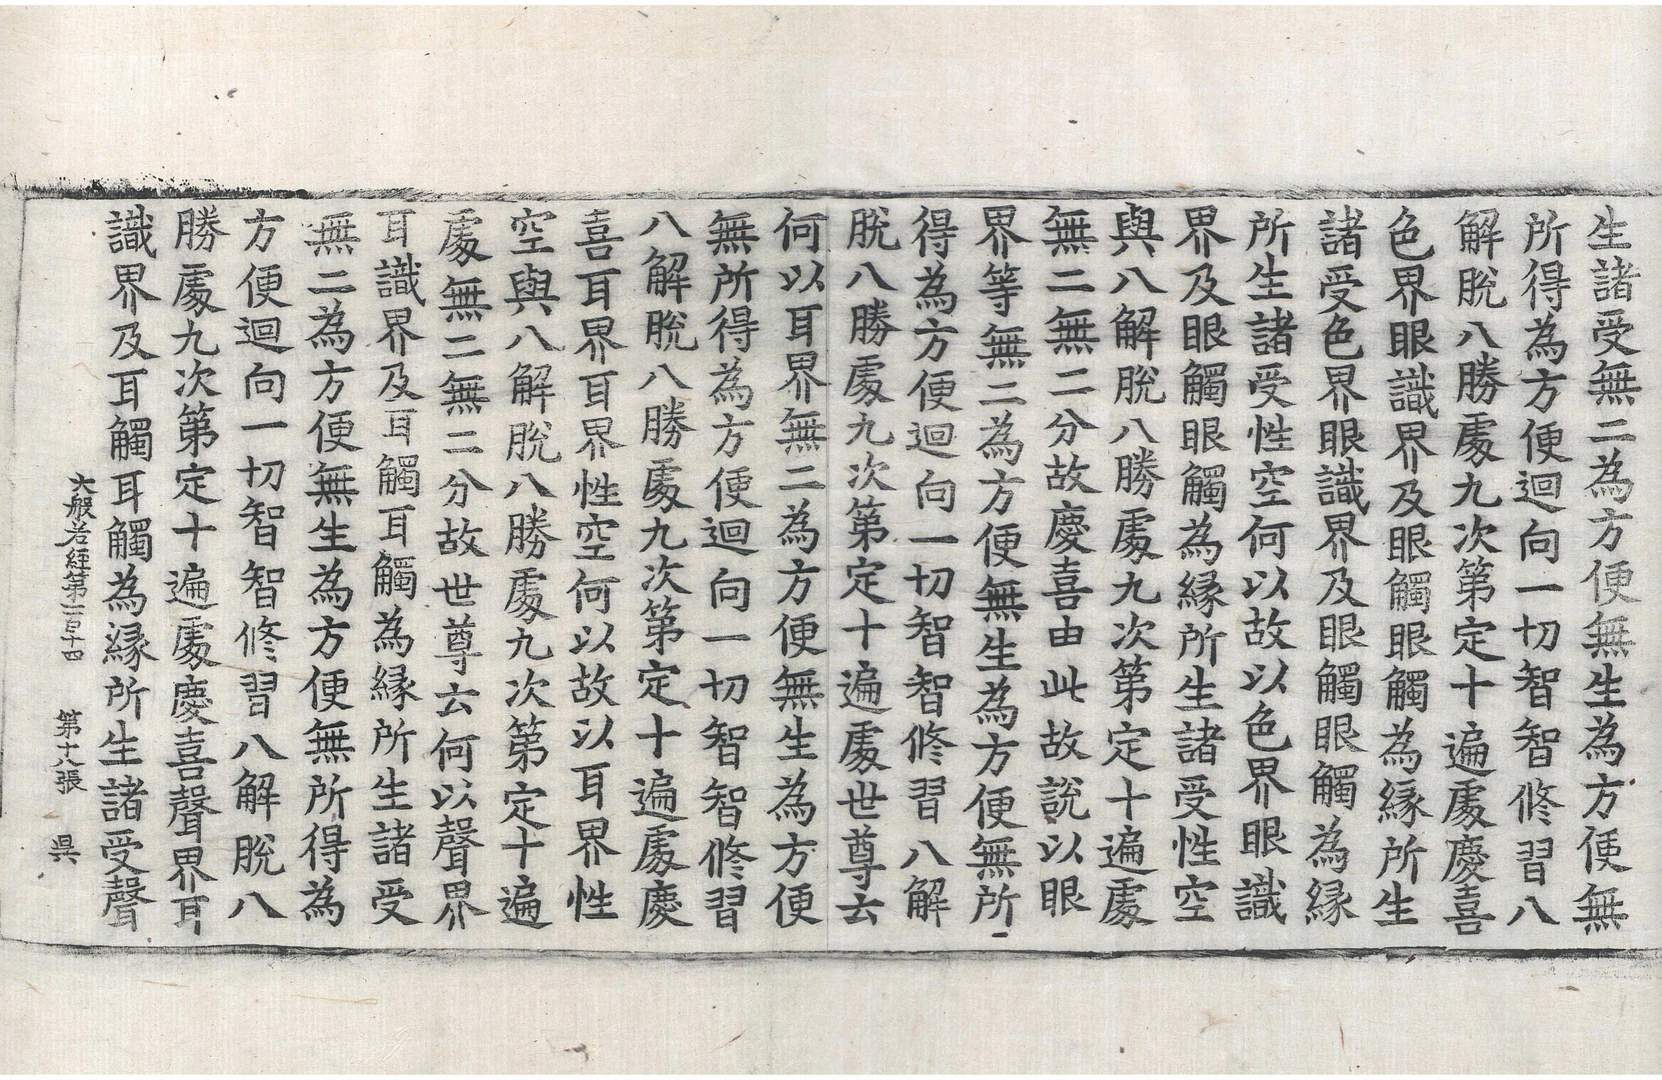 生諸受無二為方便無生為方便無
所得為方便迴向一切智智修習八
解脫八勝處九次第定十遍處慶喜
色界眼識界及眼觸眼觸為緣所生
諸受色界眼識界及眼觸眼觸為緣
所生諸受性空何以故以色界眼識
界及眼觸眼觸為緣所生諸受性空
與八解脫八勝處九次第定十遍處
無二無二分故慶喜由此故說以眼
界等無二為方便無生為方便無所
得為方便迴向一切智智修習八解
脫八勝處九次第定十遍處世尊云
何以耳界無二為方便無生為方便
無所得為方便迴向一切智智修習
八解脫八勝處九次第定十遍處慶
喜耳界耳界性空何以故以耳界性
空與八解脫八勝處九次第定十遍
處無二無二分故世尊云何以聲界
耳識界及耳觸耳觸為緣所生諸受
無二為方便無生為方便無所得為
方便迴向一切智智修習八解脫八
勝處九次第定十遍處慶喜聲界耳
識界及耳觸耳觸為緣所生諸受聲
大般若經第一百十四 第十八張 昃